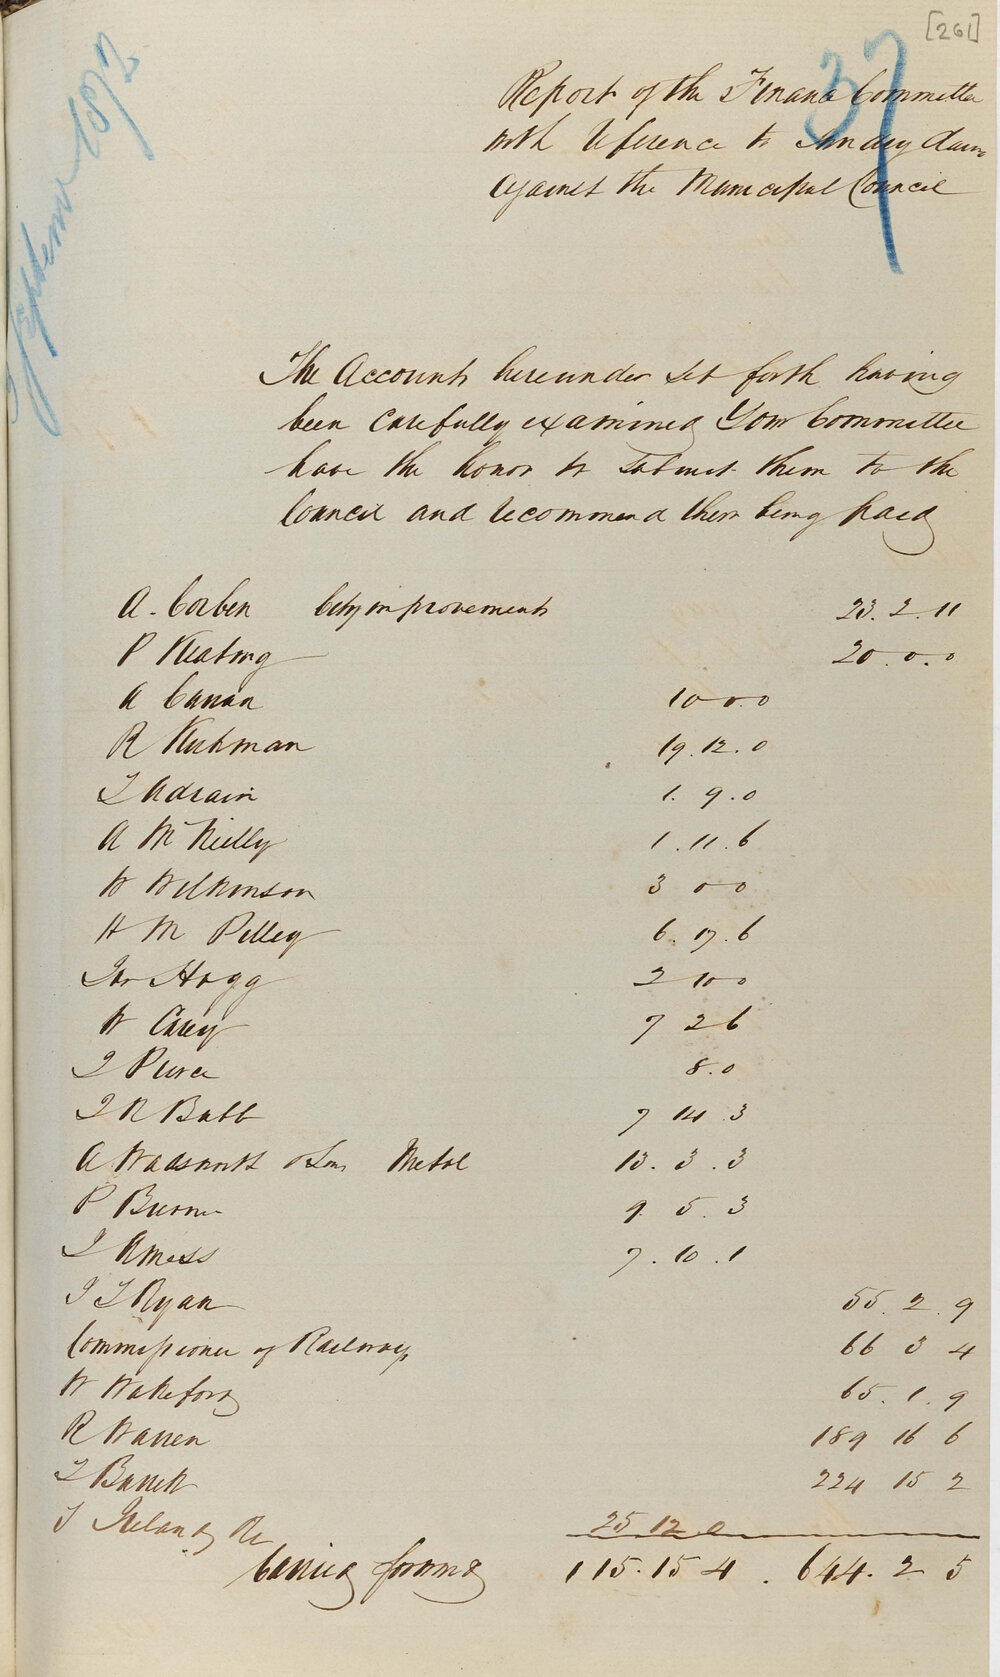 [261]
37
September 1857
Report of the Finance Committee
with reference to Sundry Claims
against the Municipal Council
The Accounts hereunder set forth having
been Carefully examined Your Committee
have the honor to Submit them to the
Council and recommend them being paid
A. Corben City improvements 23. 2. 11
P Keating 20. 0. 0
A Curran 10 0. 0
R Kirkman 19. 12. 0
T Adrain 1. 9. 0
A McNeilly 1. 11. 6
W Wilkinson 3 0 0
H M Pilley 6. 17. 6
Hogg 2 10 0
W Carey 7 2 6
J Pierce 8. 0
J R Bubb 7 14 3
A Wadsworth & Son Metal 13. 3. 3
P Burne 9. 5. 3
J Amess 7. 10. 1
J T Ryan 55. 2. 9
Commissioner of Railways 66 3 4
W Wakeford 65. 1. 9
R Warren 189 16 6
T Barrett 224 15 2
T Ireland 25 12 0
Carried forward 115. 15 4. 644. 2 5